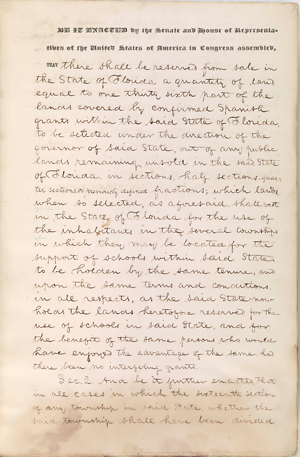 BE IT ENACTED by the Senate and House of Representa-
tives of the United States of America in Congress assembled,
THAT there shall be reserved from sale in
the State of Florida a quantity of land
equal to one thirty sixth part of the
lands covered by confirmed Spanish
grants within the said State of Florida,
to be selected under the direction of the
governor of said State, out of any public
lands remaining unsold in the said State
of Florida, in sections, half sections, quar-
ter sections or minority divided fractions; which lands
when so selected, as aforesaid shall vest
in the State of Florida for the use of
the inhabitants in the several townships
in which they may be located for the
support of schools within said State
to be holden by the same tenure, and
upon the same terms and conditions
in all respects, as the said State now
holds the lands heretofore reserved for the
use of schools in said State, and for
the benefit of the same persons who would
have enjoyed the advantage of the same had
there been no interfering grants.
Sec. 2. And be it further enacted, That
in all cases in which the sixteenth section
of any township in said State, whether the
said township shall have been divided